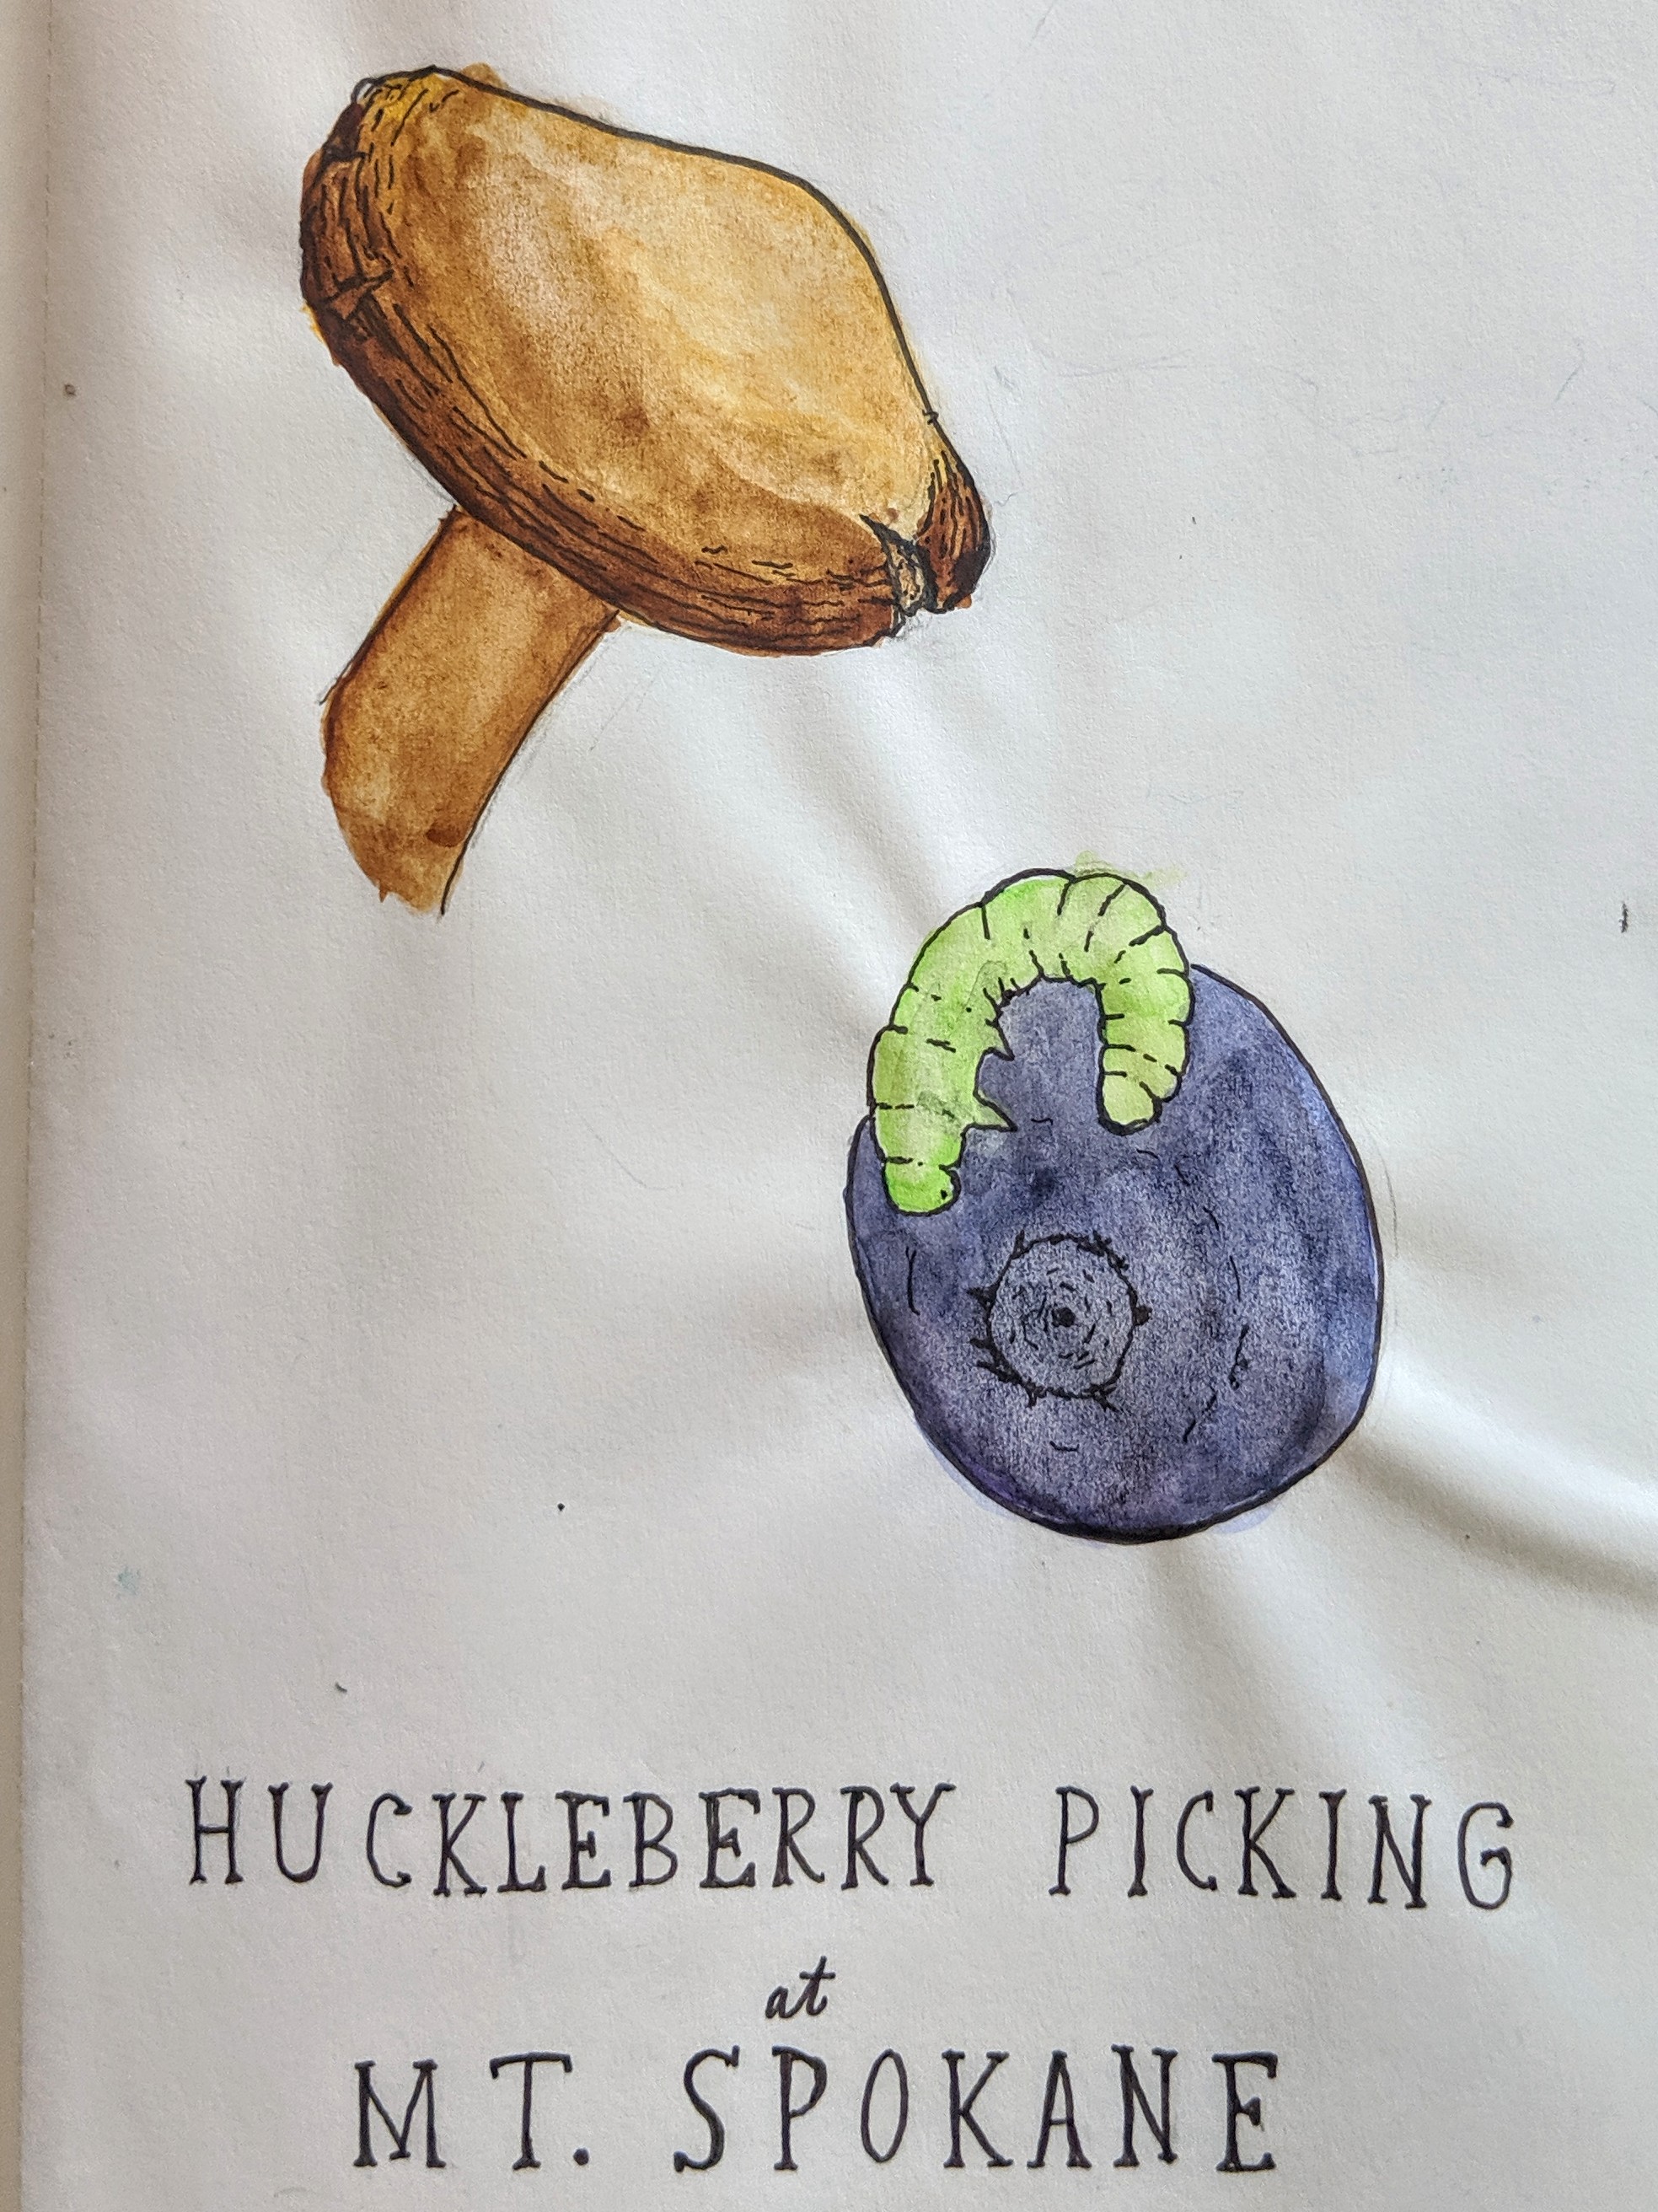 HUCKLEBERRY PICKING
at
MT. SPOKANE